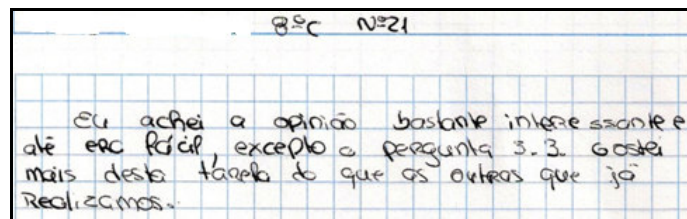 8ºC Nº21
Eu achei a opinião bastante interessante e
até era fácil, excepto a pergunta 3.3. Gostei
mais desta tarefa do que as outras que já
Realizamos.